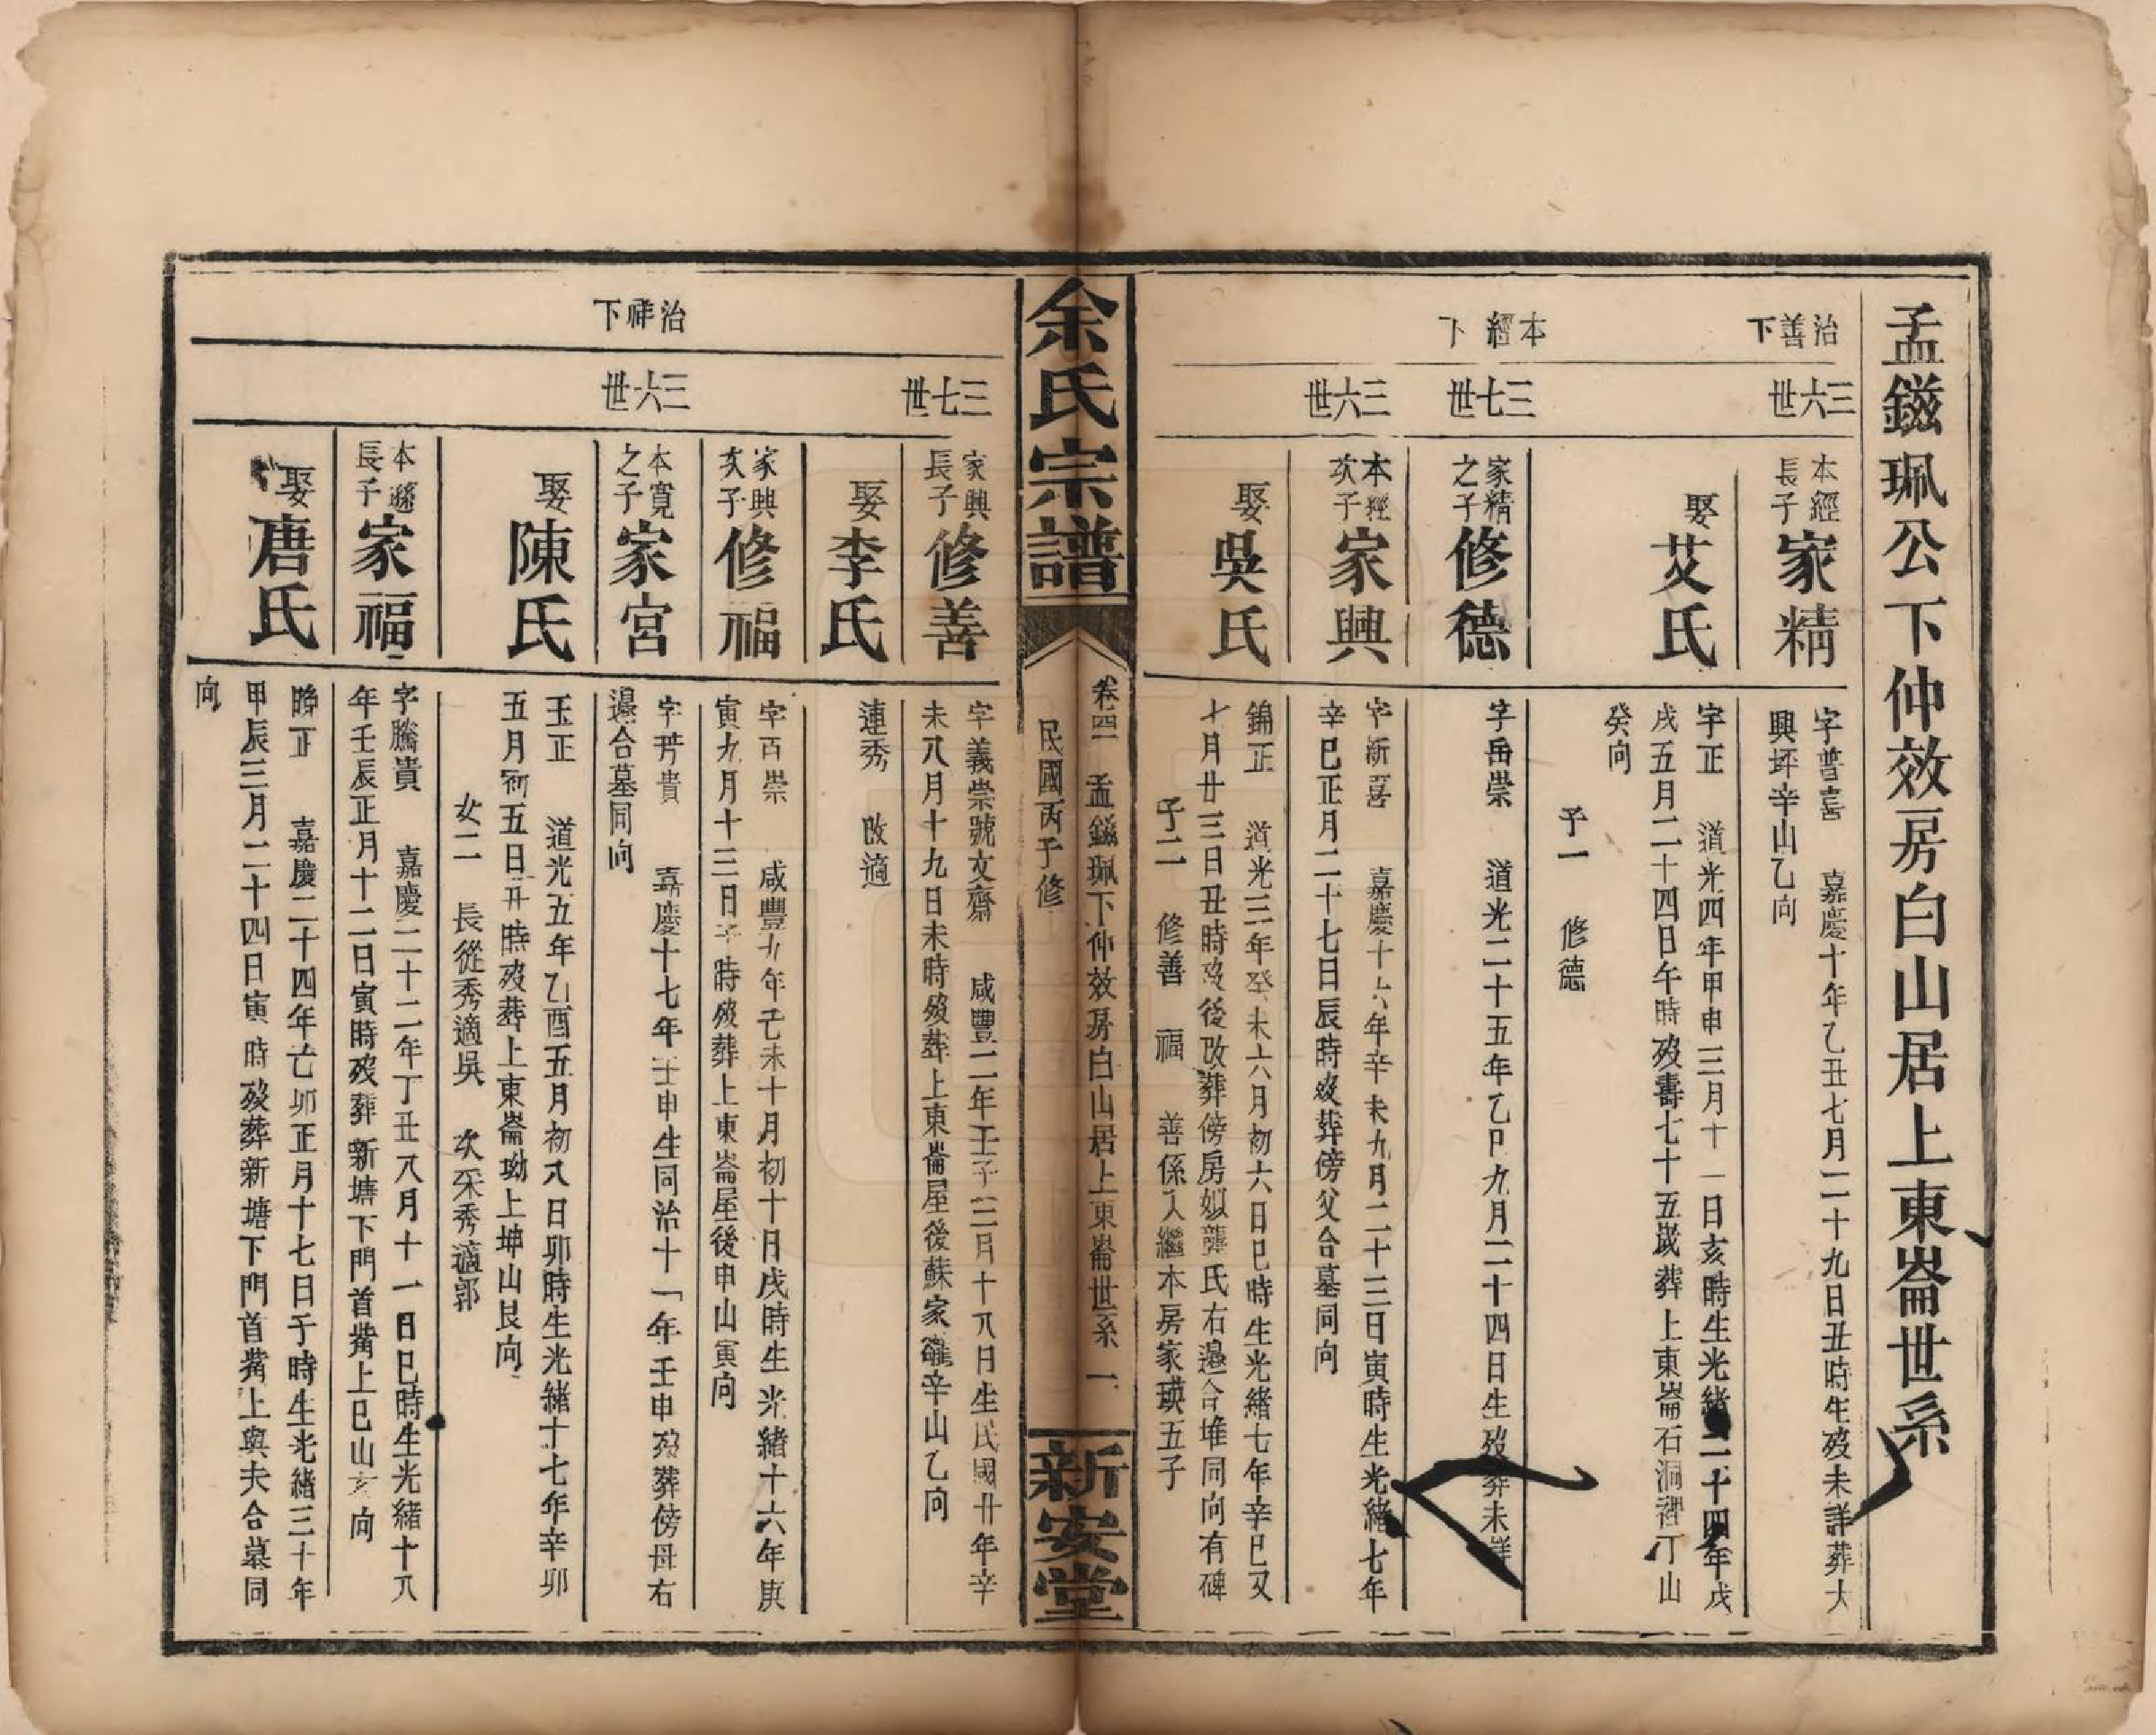 孟鎡珮公下仲效房白山居上東崙世系
治善下
三六世
本經長子
家精
字普喜 嘉慶十年乙丑七月二十九日丑時生歿未詳葬大
興坪辛山乙向
娶艾氏
字正 道光四年甲申三月十一日亥時生光緒二十四年戊
戌五月二十四日午時歿壽七十五歲葬上東崙石洞裡丁山
癸向
子一 修德
本經下
三七世
家精之子
修德
字岳崇 道光二十五年乙巳九月二十四日生歿葬未詳
三六世
本經次子
家興
字新喜 嘉慶十六年辛未九月二十三日寅時生光緒七年
辛巳正月二十七日辰時歿葬傍父合墓同向
娶吳氏
錦正 道光三年癸未六月初六日巳時生光緒七年辛巳又
七月廿三日丑時歿後改葬傍房姒龔氏右邊合堆同向有碑
子二 修善 福 善係入繼本房家瑛五子
余氏宗譜
卷四 孟鎡珮下仲效房白山居上東崙世系 一
民國丙子修
新安堂
三七世
家興長子
修善
字義崇號文齋 咸豐二年壬子三月十八日生民國廿年辛
未八月十九日未時歿葬上東崙屋後蘇家辛山乙向
娶李氏
連秀 改適
家興次子
修福
字百崇 咸豐九年己未十月初十日戌時生光緒十六年庚
寅九月十三日子時歿葬上東崙屋後申山寅向
治祥下
三六世
本寬之子
家宮
字芳貴 嘉慶十七年壬申生同治十一年壬申歿葬傍母右
邊合墓同向
娶陳氏
玉正 道光五年乙酉五月初八日卯時生光緒十七年辛卯
五月初五日丑時歿葬上東崙坳上坤山艮向
女二 長從秀適吳 次采秀適郭
本遜長子
家福
字騰貴 嘉慶二十二年丁丑八月十一日巳時生光緒十八
年壬辰正月十二日寅時歿葬新塘下門首嘴上巳山亥向
娶唐氏
聯正 嘉慶二十四年己卯正月十七日子時生光緒三十年
甲辰三月二十四日寅時歿葬新塘下門首嘴上與夫合墓同
向